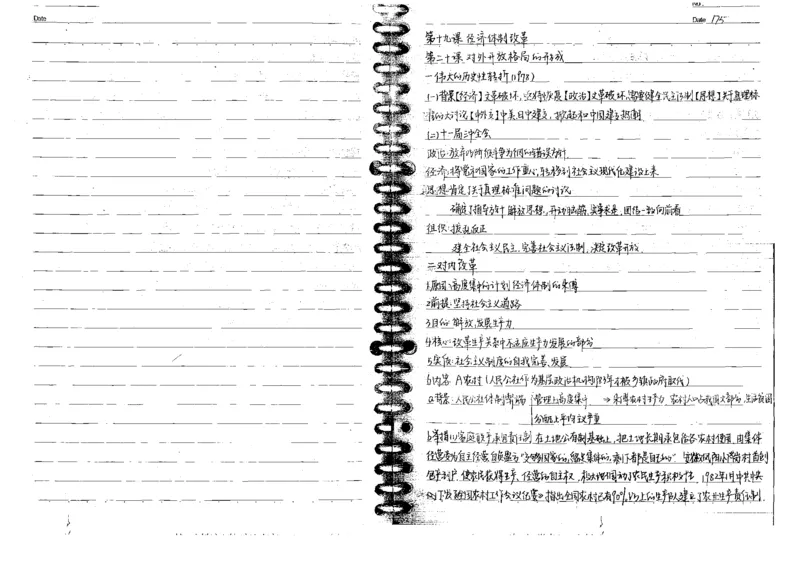 Date
No.
Date 175
第十九课 经济体制改革
第二十课 对外开放格局的形成
一伟大的历史性转折(1978)
(一)背景【经济】文革破坏,【政治】文革破坏,需要健全民主法制【思想】关于真理标
准的大讨论【外交】中美日中建交,掀起和中国建交热潮
(二)十一届三中全会
政治:放弃以阶级斗争为纲的错误方针
经济:将党和国家的工作重心,转移到社会主义现代化建设上来
思想:肯定了关于真理标准问题的讨论
确定了指导方针 解放思想,开动脑筋,实事求是,团结一致向前看
组织:拨乱反正
健全社会主义民主,完善社会主义法制,决定改革开放.
二.对内改革
1.原因:高度集中的计划经济体制的束缚
2.前提:坚持社会主义道路
3.目的:解放,发展生产力
4.核心:改革生产关系中不适应生产力发展的部分
5.实质:社会主义制度的自我完善,发展
6.内容:A农村(人民公社作为基层政治机构83年才被乡镇政府取代)
a.背景:人民公社体制弊端 管理上高度集中 → 束缚农村生产力,农村人口占我国大部分,生活贫困
分配上平均主义严重
b.举措:(1)家庭联产承包责任制 在土地公有制基础上,把土地长期承包给各农户使用,由集体
经营变为自主经营自负盈亏“交够国家的,留足集体的,剩下都是自己的” 安徽凤阳小岗村首创
包产到户,使农民获得生产,经营的自主权,极大地调动了农民生产积极性,1982年1月中共中央
下发《全国农村工作会议纪要》指出全国农村已有90%以上的生产队建立了农业生产责任制.